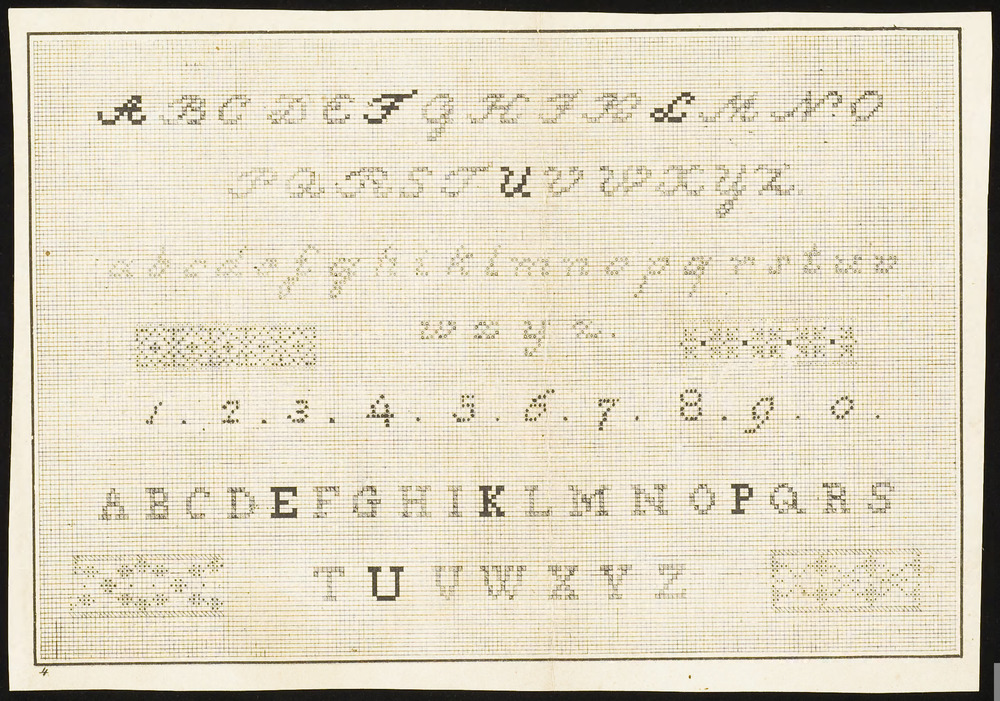 A B C D E F G H I K L M N O
P Q R S T U V W X Y Z.
a b c d e f g h i k l m n o p q r s t u v
w x y z.
1. 2. 3. 4. 5. 6. 7. 8. 9. 0.
A B C D E F G H I K L M N O P Q R S
T U V W X Y Z
4